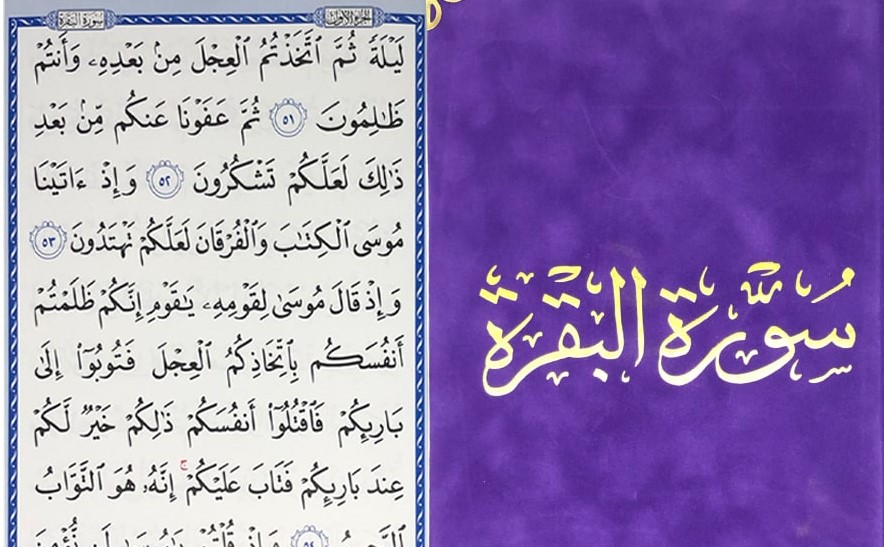 سورة البقرة
الجزء الأول
لَيْلَةً ثُمَّ ٱتَّخَذْتُمُ ٱلْعِجْلَ مِنۢ بَعْدِهِۦ وَأَنتُمْ
ظَٰلِمُونَ ٥١ ثُمَّ عَفَوْنَا عَنكُم مِّنۢ بَعْدِ
ذَٰلِكَ لَعَلَّكُمْ تَشْكُرُونَ ٥٢ وَإِذْ ءَاتَيْنَا
مُوسَى ٱلْكِتَٰبَ وَٱلْفُرْقَانَ لَعَلَّكُمْ تَهْتَدُونَ ٥٣
وَإِذْ قَالَ مُوسَىٰ لِقَوْمِهِۦ يَٰقَوْمِ إِنَّكُمْ ظَلَمْتُمْ
أَنفُسَكُم بِٱتِّخَاذِكُمُ ٱلْعِجْلَ فَتُوبُوٓا۟ إِلَىٰ
بَارِئِكُمْ فَٱقْتُلُوٓا۟ أَنفُسَكُمْ ذَٰلِكُمْ خَيْرٌ لَّكُمْ
عِندَ بَارِئِكُمْ فَتَابَ عَلَيْكُمْ ۚ إِنَّهُۥ هُوَ ٱلتَّوَّابُ
سُورَةُ البَقَرَةِ